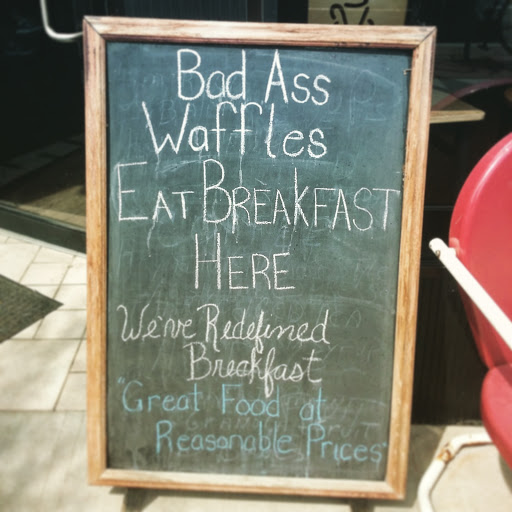 Bad Ass
Waffles
EAT BREAKFAST
HERE
We've Redefined
Breakfast
"Great Food at
Reasonable Prices"